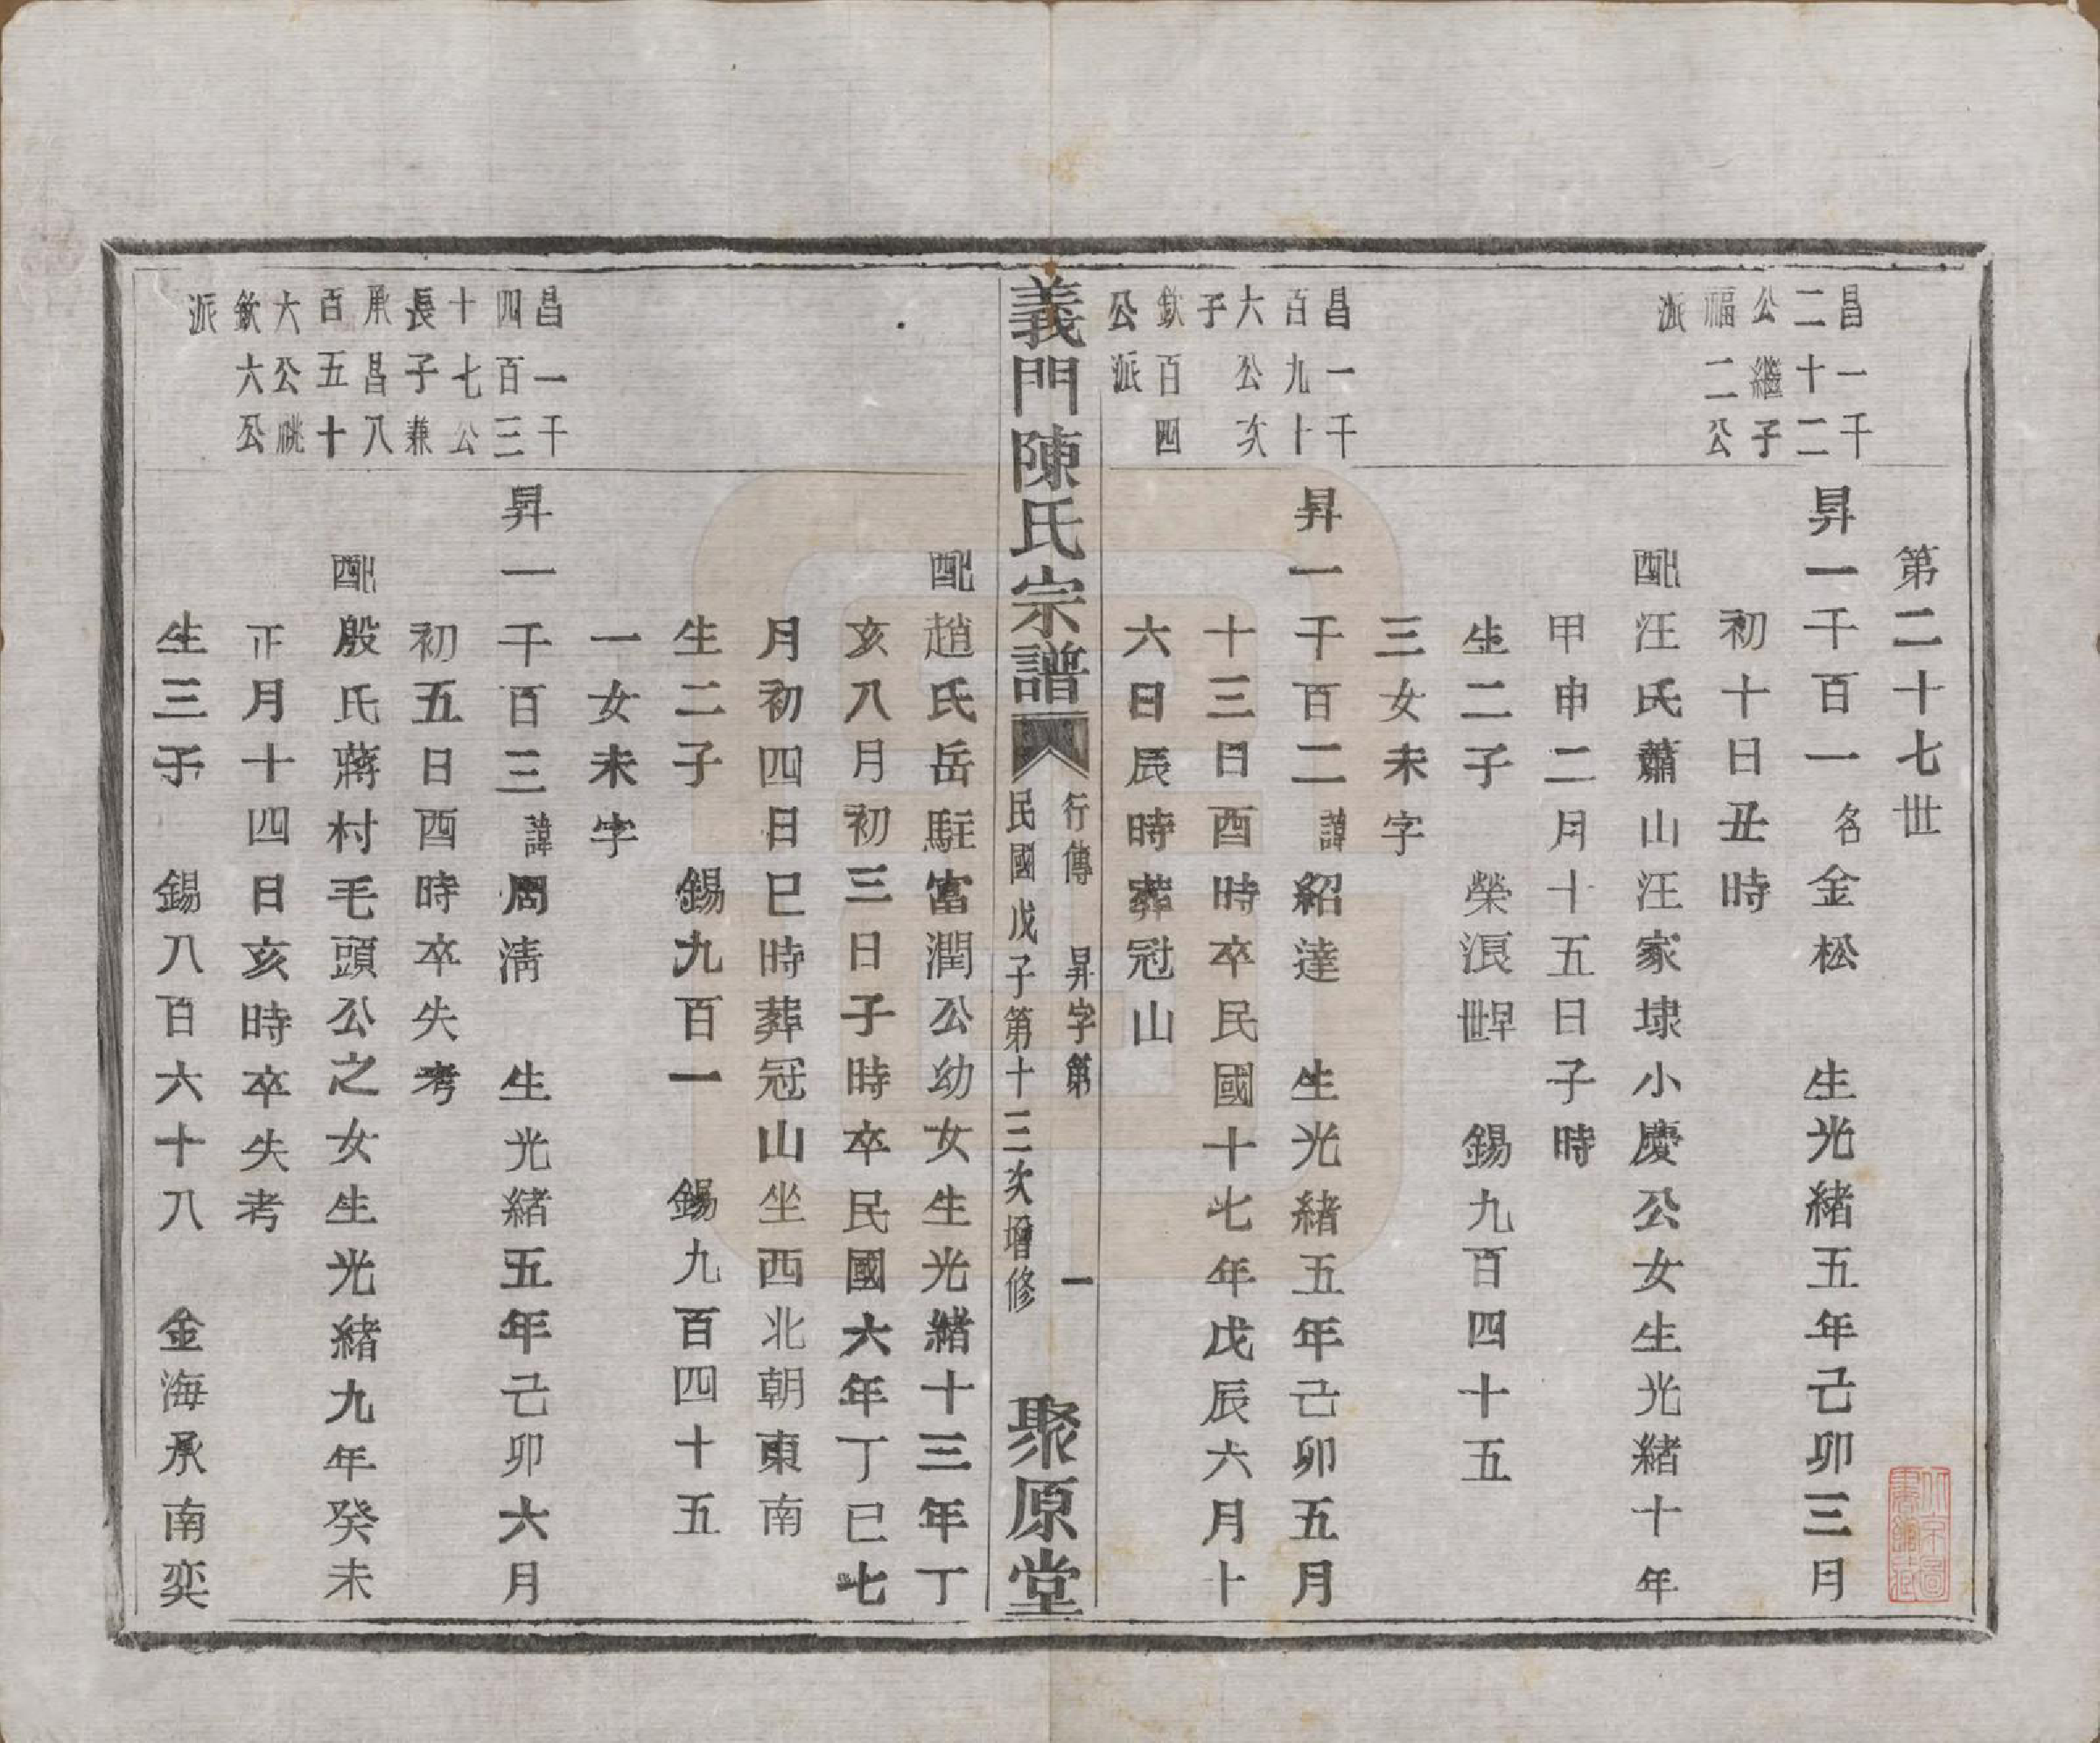 第二十七世
昌一千
二十二
公繼子
福二公
派
昇一千百一名金松　生光緒五年己卯三月
初十日丑時
配汪氏蕭山汪家埭小慶公女生光緒十年
甲申二月十五日子時
生二子　榮浪世早　錫九百四十五
三女未字
昌一千
百九十
六公次
子
欽百四
公派
昇一千百二諱紹達　生光緒五年己卯五月
十三日酉時卒民國十七年戊辰六月十
六日辰時葬冠山
義門陳氏宗譜
行傳　昇字第　一
民國戊子第十三次增修
聚原堂
配趙氏岳駐富潤公幼女生光緒十三年丁
亥八月初三日子時卒民國六年丁巳七
月初四日巳時葬冠山坐西北朝東南
生二子　錫九百一　錫九百四十五
一女未字
昌一千
四百三
十七公
長子兼
承昌八
百五十
六公祧
欽六公
派
昇一千百三諱周淸　生光緒五年己卯六月
初五日酉時卒失考
配殷氏蔣村毛頭公之女生光緒九年癸未
正月十四日亥時卒失考
生三子　錫八百六十八　金海承南奕